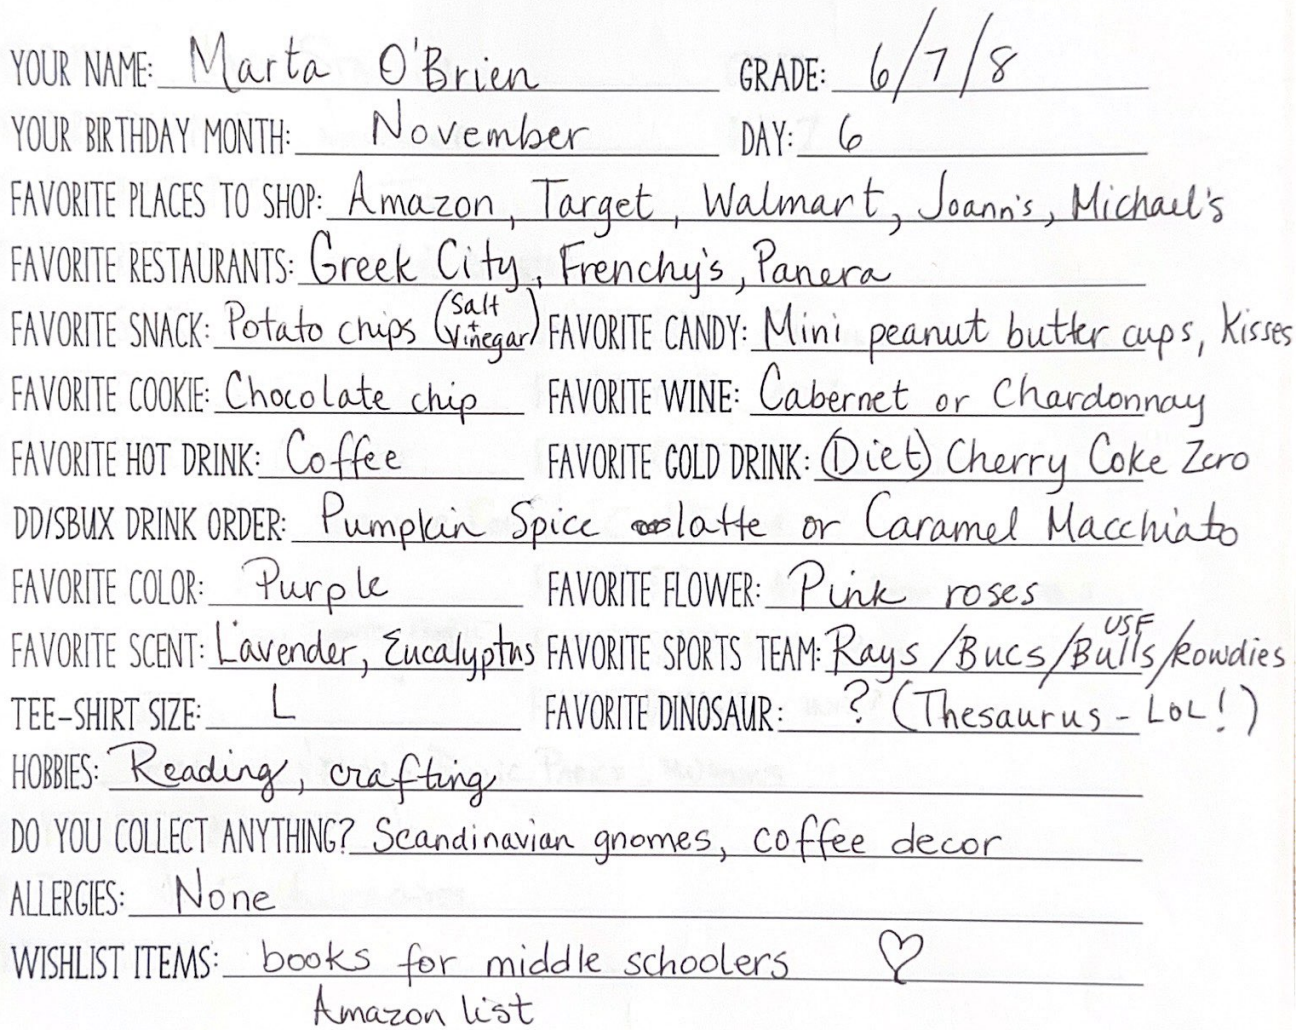 YOUR NAME: Marta O'Brien GRADE: 6/7/8
YOUR BIRTHDAY MONTH: November DAY: 6
FAVORITE PLACES TO SHOP: Amazon, Target, Walmart, Joann's, Michael's
FAVORITE RESTAURANTS: Greek City, Frenchy's, Panera
FAVORITE SNACK: Potato chips (Salt + Vinegar) FAVORITE CANDY: Mini peanut butter cups, Kisses
FAVORITE COOKIE: Chocolate chip FAVORITE WINE: Cabernet or Chardonnay
FAVORITE HOT DRINK: Coffee FAVORITE COLD DRINK: (Diet) Cherry Coke Zero
DD/SBUX DRINK ORDER: Pumpkin Spice latte or Caramel Macchiato
FAVORITE COLOR: Purple FAVORITE FLOWER: Pink roses
FAVORITE SCENT: Lavender, Eucalyptus FAVORITE SPORTS TEAM: Rays/Bucs/USF Bulls/Rowdies
TEE-SHIRT SIZE: L FAVORITE DINOSAUR: ? (Thesaurus - LOL!)
HOBBIES: Reading, crafting
DO YOU COLLECT ANYTHING? Scandinavian gnomes, coffee decor
ALLERGIES: None
WISHLIST ITEMS: books for middle schoolers ♡
Amazon list